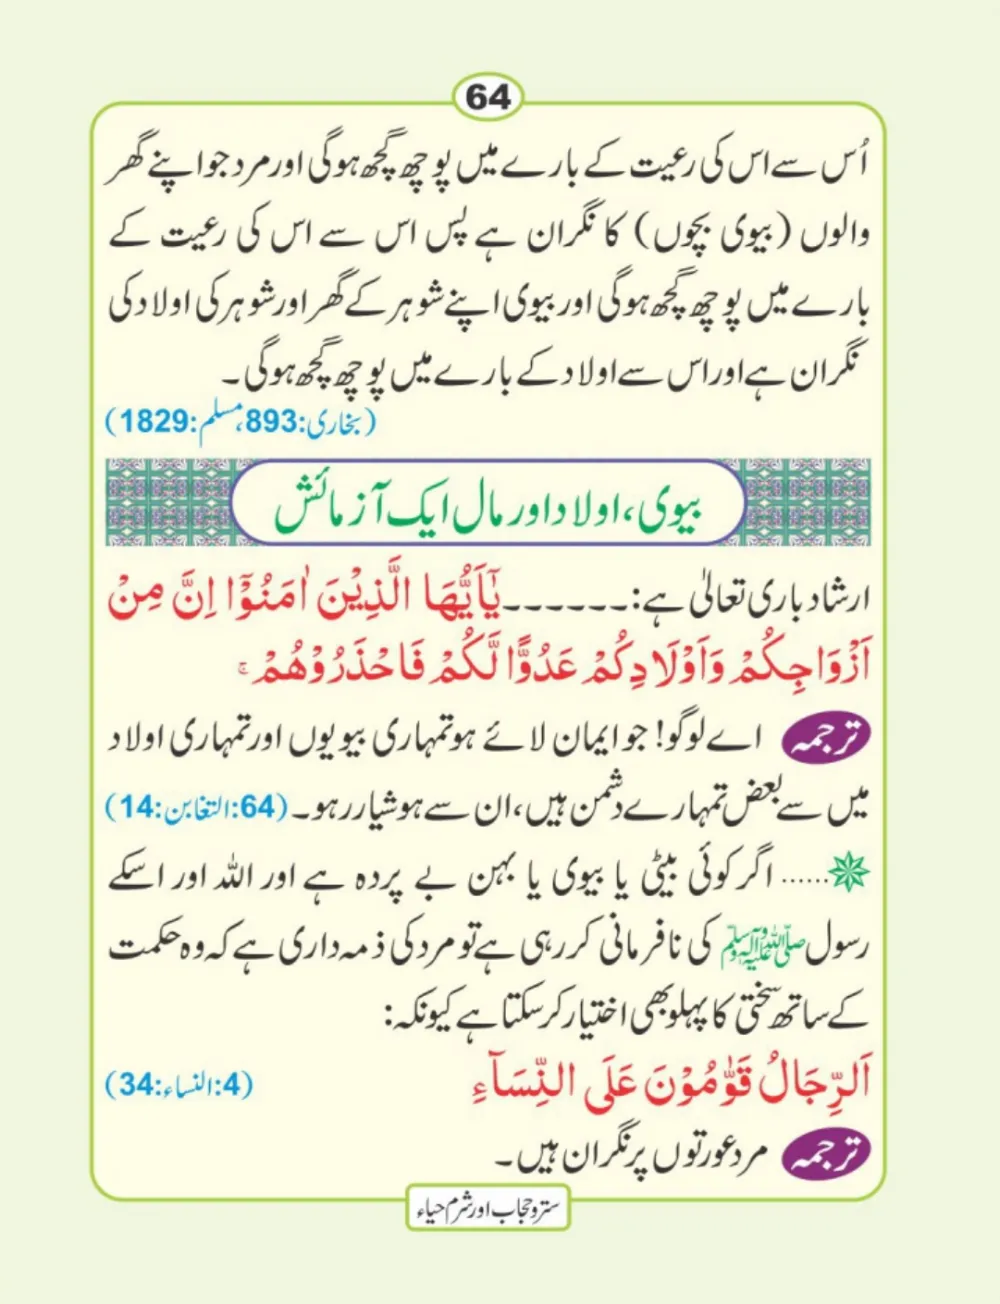 64
اُس سے اس کی رعیت کے بارے میں پوچھ گچھ ہوگی اور مرد جو اپنے گھر
والوں (بیوی بچوں) کا نگران ہے پس اس سے اس کی رعیت کے
بارے میں پوچھ گچھ ہوگی اور بیوی اپنے شوہر کے گھر اور شوہر کی اولاد کی
نگران ہے اور اس سے اولاد کے بارے میں پوچھ گچھ ہوگی۔
(بخاری:893، مسلم:1829)
بیوی، اولاد اور مال ایک آزمائش
ارشاد باری تعالیٰ ہے:۔۔۔۔۔۔ يٰۤاَيُّهَا الَّذِيْنَ اٰمَنُوْۤا اِنَّ مِنْ
اَزْوَاجِكُمْ وَاَوْلَادِكُمْ عَدُوًّا لَّكُمْ فَاحْذَرُوْهُمْ ۚ
ترجمہ اے لوگو! جو ایمان لائے ہو تمہاری بیویوں اور تمہاری اولاد
میں سے بعض تمہارے دشمن ہیں، ان سے ہوشیار رہو۔ (64:التغابن:14)
...... اگر کوئی بیٹی یا بیوی یا بہن بے پردہ ہے اور اللہ اور اسکے
رسول صلی اللہ علیہ وآلہ وسلم کی نافرمانی کر رہی ہے تو مرد کی ذمہ داری ہے کہ وہ حکمت
کے ساتھ سختی کا پہلو بھی اختیار کر سکتا ہے کیونکہ:
اَلرِّجَالُ قَوّٰمُوْنَ عَلَى النِّسَآءِ (4:النساء:34)
ترجمہ مرد عورتوں پر نگران ہیں۔
ستر و حجاب اور شرم حیاء